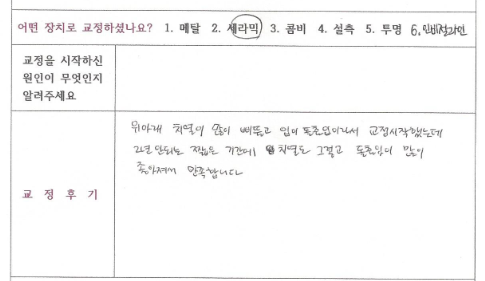 어떤 장치로 교정하셨나요? 1. 메탈 2. 세라믹 3. 콤비 4. 설측 5. 투명 6. 인비절라인
교정을 시작하신
원인이 무엇인지
알려주세요
위아래 치열이 많이 삐뚤고 입이 돌출입이라서 교정시작했는데
2년 안되는 짧은 기간에 치열도 그렇고 돌출입이 많이
좋아져서 만족합니다
교 정 후 기